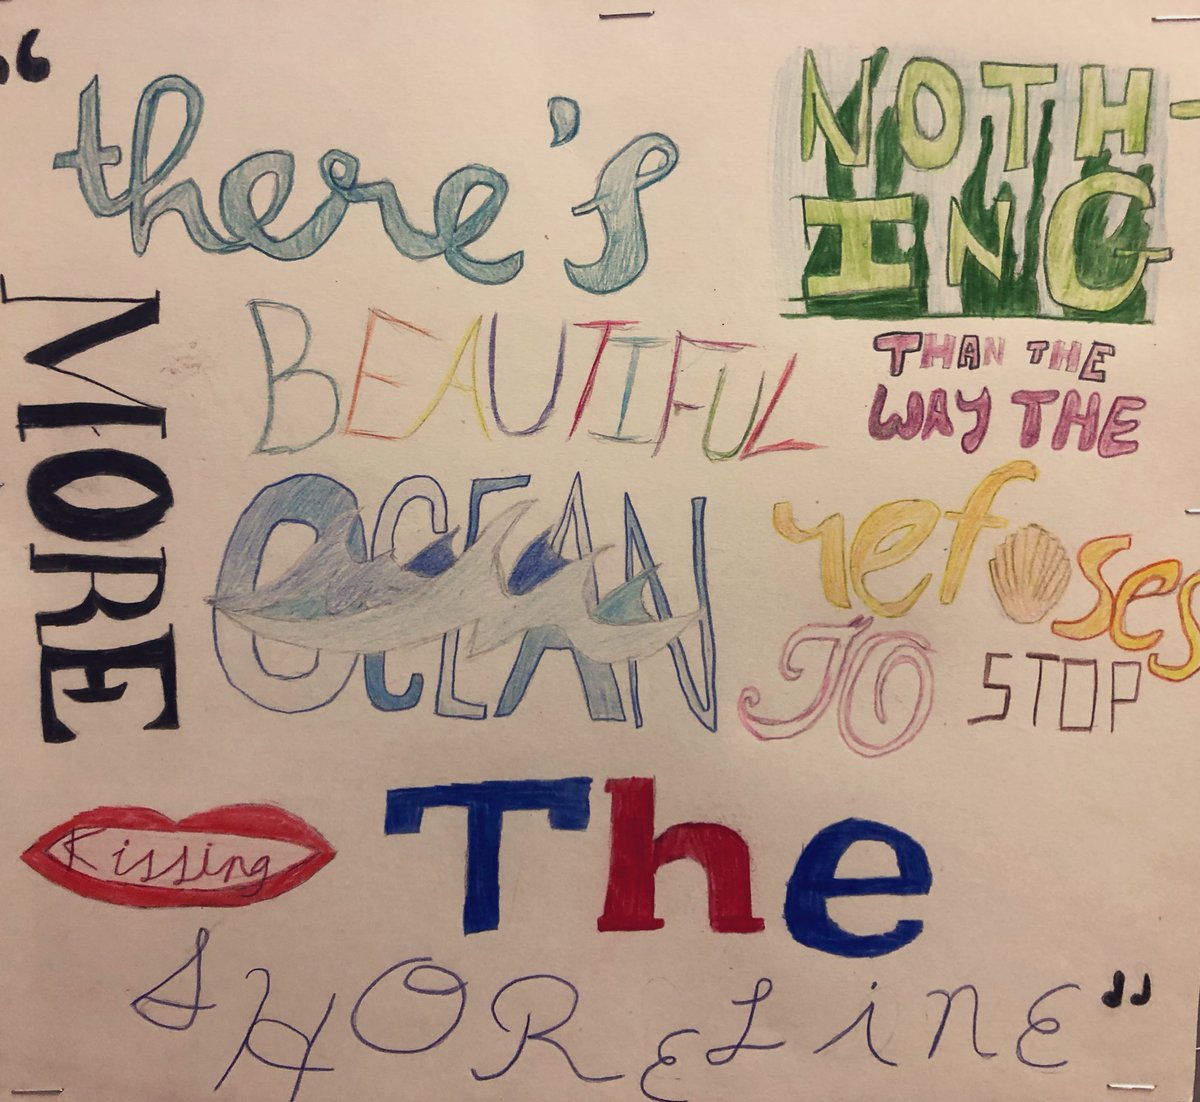 “there's
NOTH-
ING
MORE
BEAUTIFUL
THAN THE
WAY THE
OCEAN
refuses
TO STOP
Kissing The
SHORELINE"